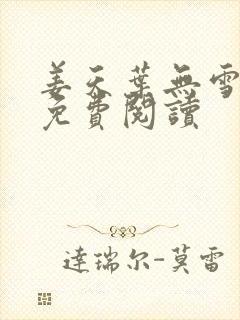 姜天葉無雪
免費閱讀
達瑞尔-莫雷